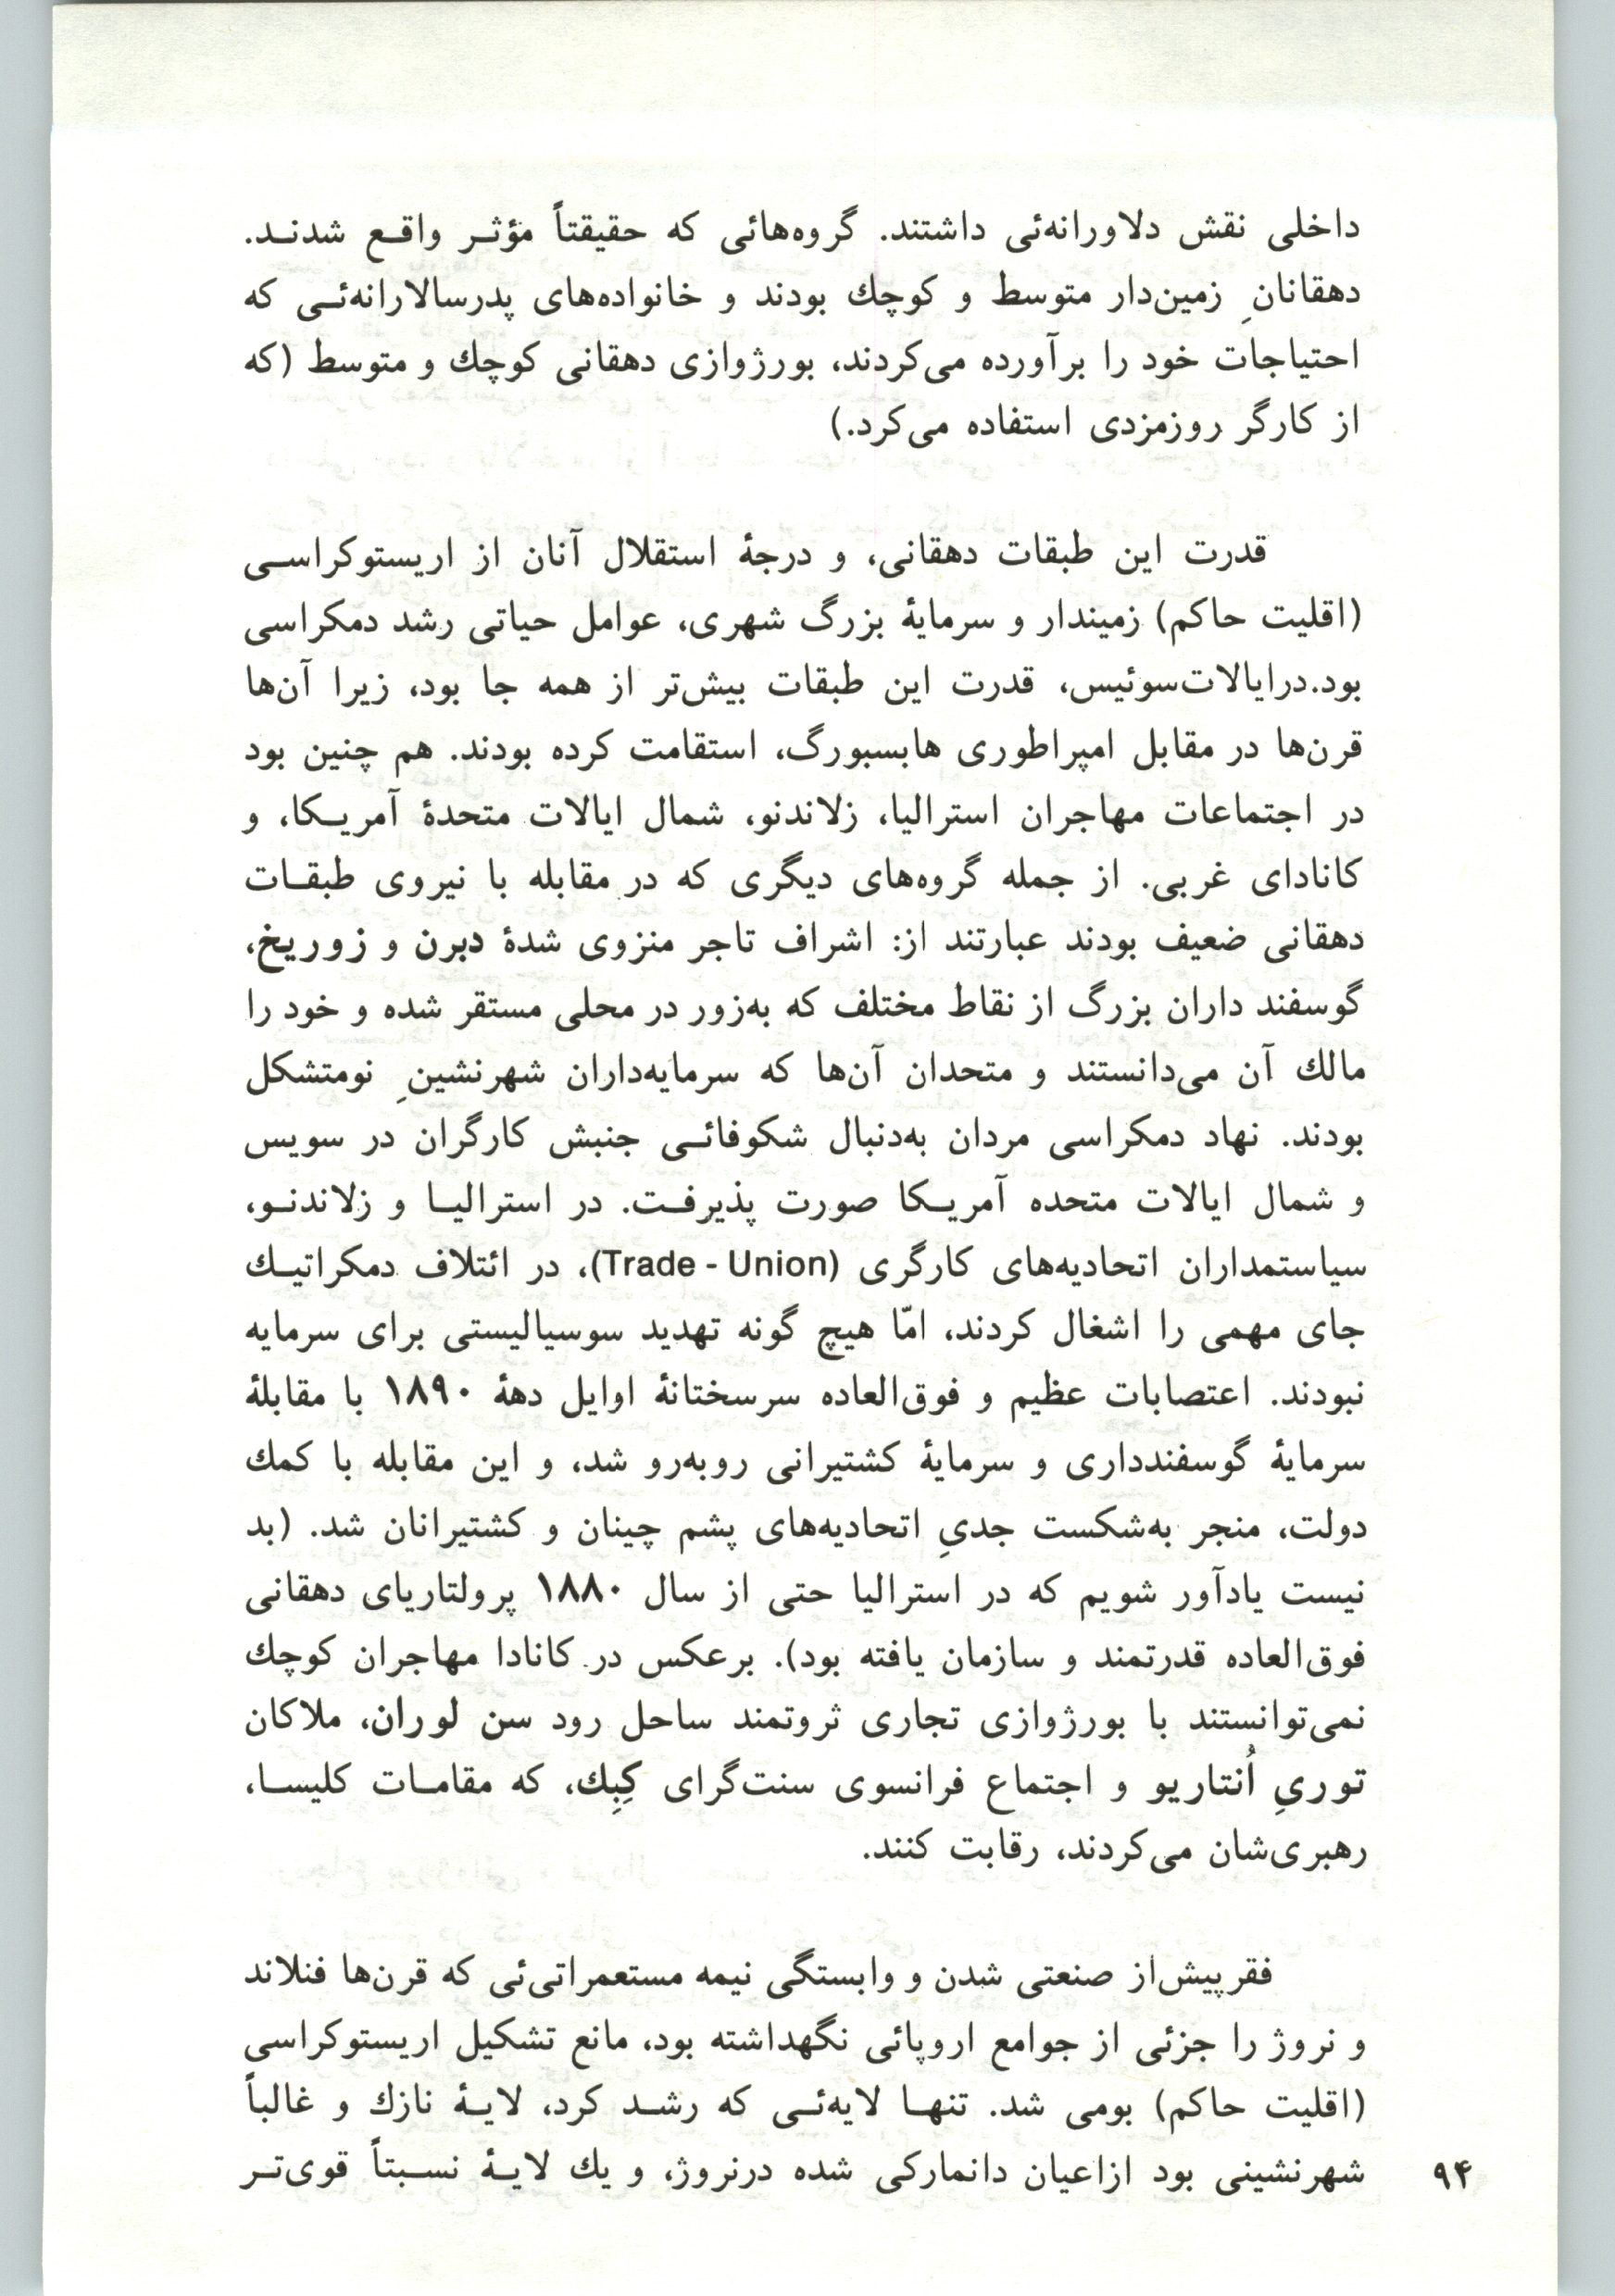 داخلی نقش دلاورانه‌ئی داشتند. گروه‌هائی که حقیقتاً مؤثر واقع شدند.
دهقانانِ زمین‌دار متوسط و کوچك بودند و خانواده‌های پدرسالارانه‌ئی که
احتیاجات خود را برآورده می‌کردند، بورژوازی دهقانی کوچك و متوسط (که
از کارگر روزمزدی استفاده می‌کرد.)
قدرت این طبقات دهقانی، و درجهٔ استقلال آنان از اریستوکراسی
(اقلیت حاکم) زمیندار و سرمایهٔ بزرگ شهری، عوامل حیاتی رشد دمکراسی
بود.درایالات‌سوئیس، قدرت این طبقات بیش‌تر از همه جا بود، زیرا آن‌ها
قرن‌ها در مقابل امپراطوری هابسبورگ، استقامت کرده بودند. هم چنین بود
در اجتماعات مهاجران استرالیا، زلاندنو، شمال ایالات متحدهٔ آمریکا، و
کانادای غربی. از جمله گروه‌های دیگری که در مقابله با نیروی طبقات
دهقانی ضعیف بودند عبارتند از: اشراف تاجر منزوی شدهٔ دبرن و زوریخ،
گوسفند داران بزرگ از نقاط مختلف که به‌زور در محلی مستقر شده و خود را
مالك آن می‌دانستند و متحدان آن‌ها که سرمایه‌داران شهرنشینِ نومتشکل
بودند. نهاد دمکراسی مردان به‌دنبال شکوفائی جنبش کارگران در سویس
و شمال ایالات متحده آمریکا صورت پذیرفت. در استرالیا و زلاندنو،
سیاستمداران اتحادیه‌های کارگری (Trade - Union)، در ائتلاف دمکراتیك
جای مهمی را اشغال کردند، امّا هیچ گونه تهدید سوسیالیستی برای سرمایه
نبودند. اعتصابات عظیم و فوق‌العاده سرسختانهٔ اوایل دههٔ ۱۸۹۰ با مقابلهٔ
سرمایهٔ گوسفندداری و سرمایهٔ کشتیرانی روبه‌رو شد، و این مقابله با کمك
دولت، منجر به‌شکست جدیِ اتحادیه‌های پشم چینان و کشتیرانان شد. (بد
نیست یادآور شویم که در استرالیا حتی از سال ۱۸۸۰ پرولتاریای دهقانی
فوق‌العاده قدرتمند و سازمان یافته بود). برعکس در کانادا مهاجران کوچك
نمی‌توانستند با بورژوازی تجاری ثروتمند ساحل رود سن لوران، ملاکان
توریِ اُنتاریو و اجتماع فرانسوی سنت‌گرای کِبِك، که مقامات کلیسا،
رهبری‌شان می‌کردند، رقابت کنند.
فقر پیش‌از صنعتی شدن و وابستگی نیمه مستعمراتی‌ئی که قرن‌ها فنلاند
و نروژ را جزئی از جوامع اروپائی نگهداشته بود، مانع تشکیل اریستوکراسی
(اقلیت حاکم) بومی شد. تنها لایه‌ئی که رشد کرد، لایهٔ نازك و غالباً
شهرنشینی بود ازاعیان دانمارکی شده درنروژ، و یك لایهٔ نسبتاً قوی‌تر
۹۴